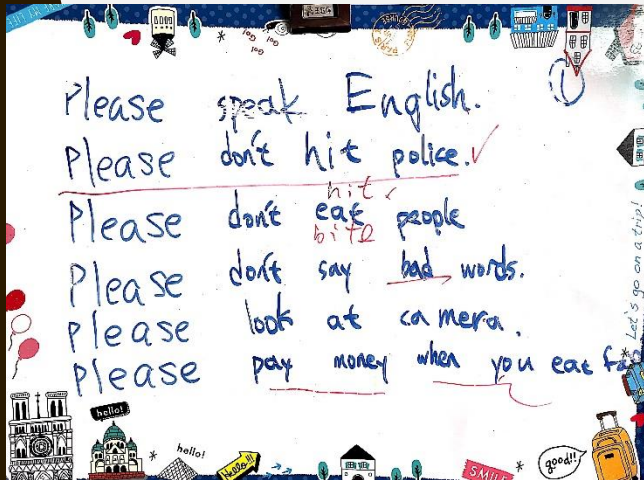 ①
Please speak English.
Please don't hit police.
hit
Please don't eat people
bite
Please don't say bad words.
Please look at camera.
Please pay money when you eat
Let's go on a trip!
hello!
hello!
Hello!!
SMILE
good!!
Go!
Go!
Go!